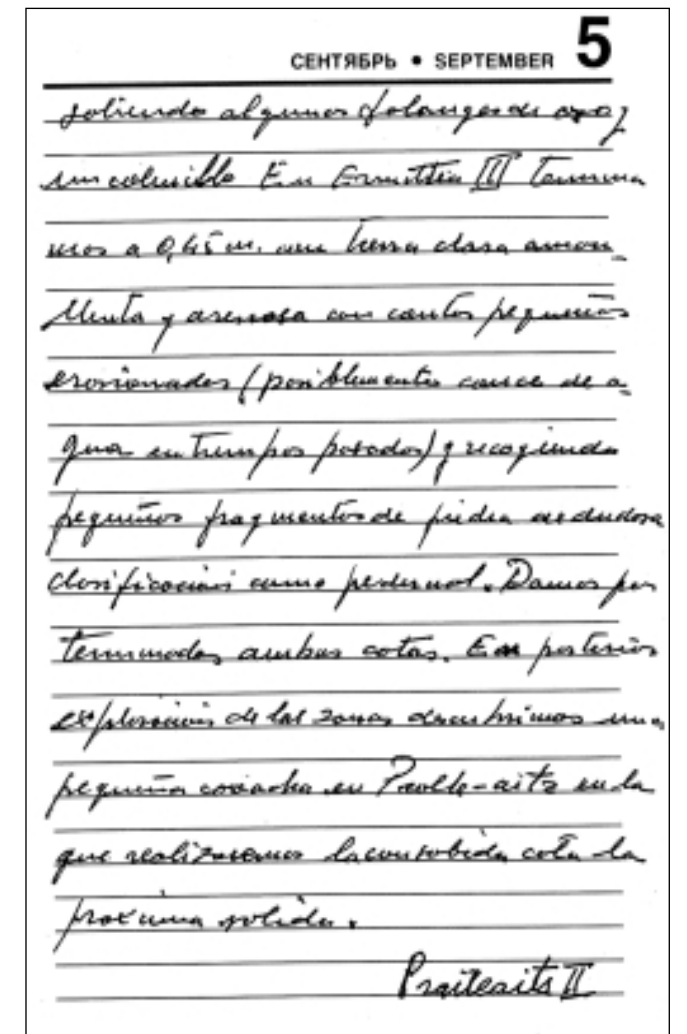 СЕНТЯБРЬ • SEPTEMBER 5
saliendo algunos falanges de oso y
un colmillo En Ermittia III termina
mos a 0,45 m. con tierra clara amari
llenta y arenosa con cantos pequeños
erosionados (posiblemente cauce de a
gua en tiempos pasados) y recogiendo
pequeños fragmentos de piedra de dudosa
clasificación como pedernal. Damos por
terminadas ambas catas. En posterior
exploración de las zonas descubrimos una
pequeña covacha en -aitz en la
que realizaremos la consabida cata la
proxima salida.
Praileaitz II